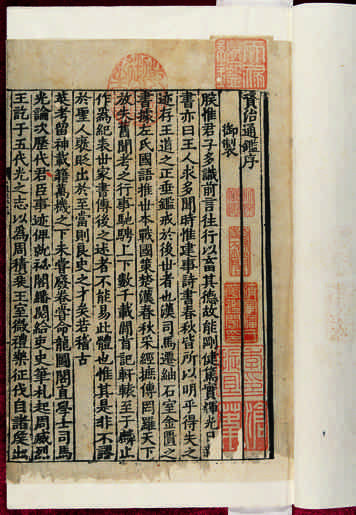 資治通鑑序
御製
朕惟君子多識前言往行以畜其德故能剛健篤實輝光日新
書亦曰王人求多聞時惟建事詩書春秋皆所以明乎得失之
迹存王道之正垂鑑戒於後世者也漢司馬遷紬石室金匱之
書據左氏國語推世本戰國策楚漢春秋采經摭傳罔羅天下
放失舊聞考之行事馳騁上下數千載間首記軒轅至于麟止
作為紀表世家書傳後之述者不能易此體也惟其是非不謬
於聖人襃貶出於至當則良史之才矣若稽古
英考留神載籍萬機之下未嘗廢卷嘗命龍圖閣直學士司馬
光論次歷代君臣事迹俾就祕閣繙閱給吏史筆札起周威烈
王訖于五代光之志以為周積衰王室微禮樂征伐自諸侯出